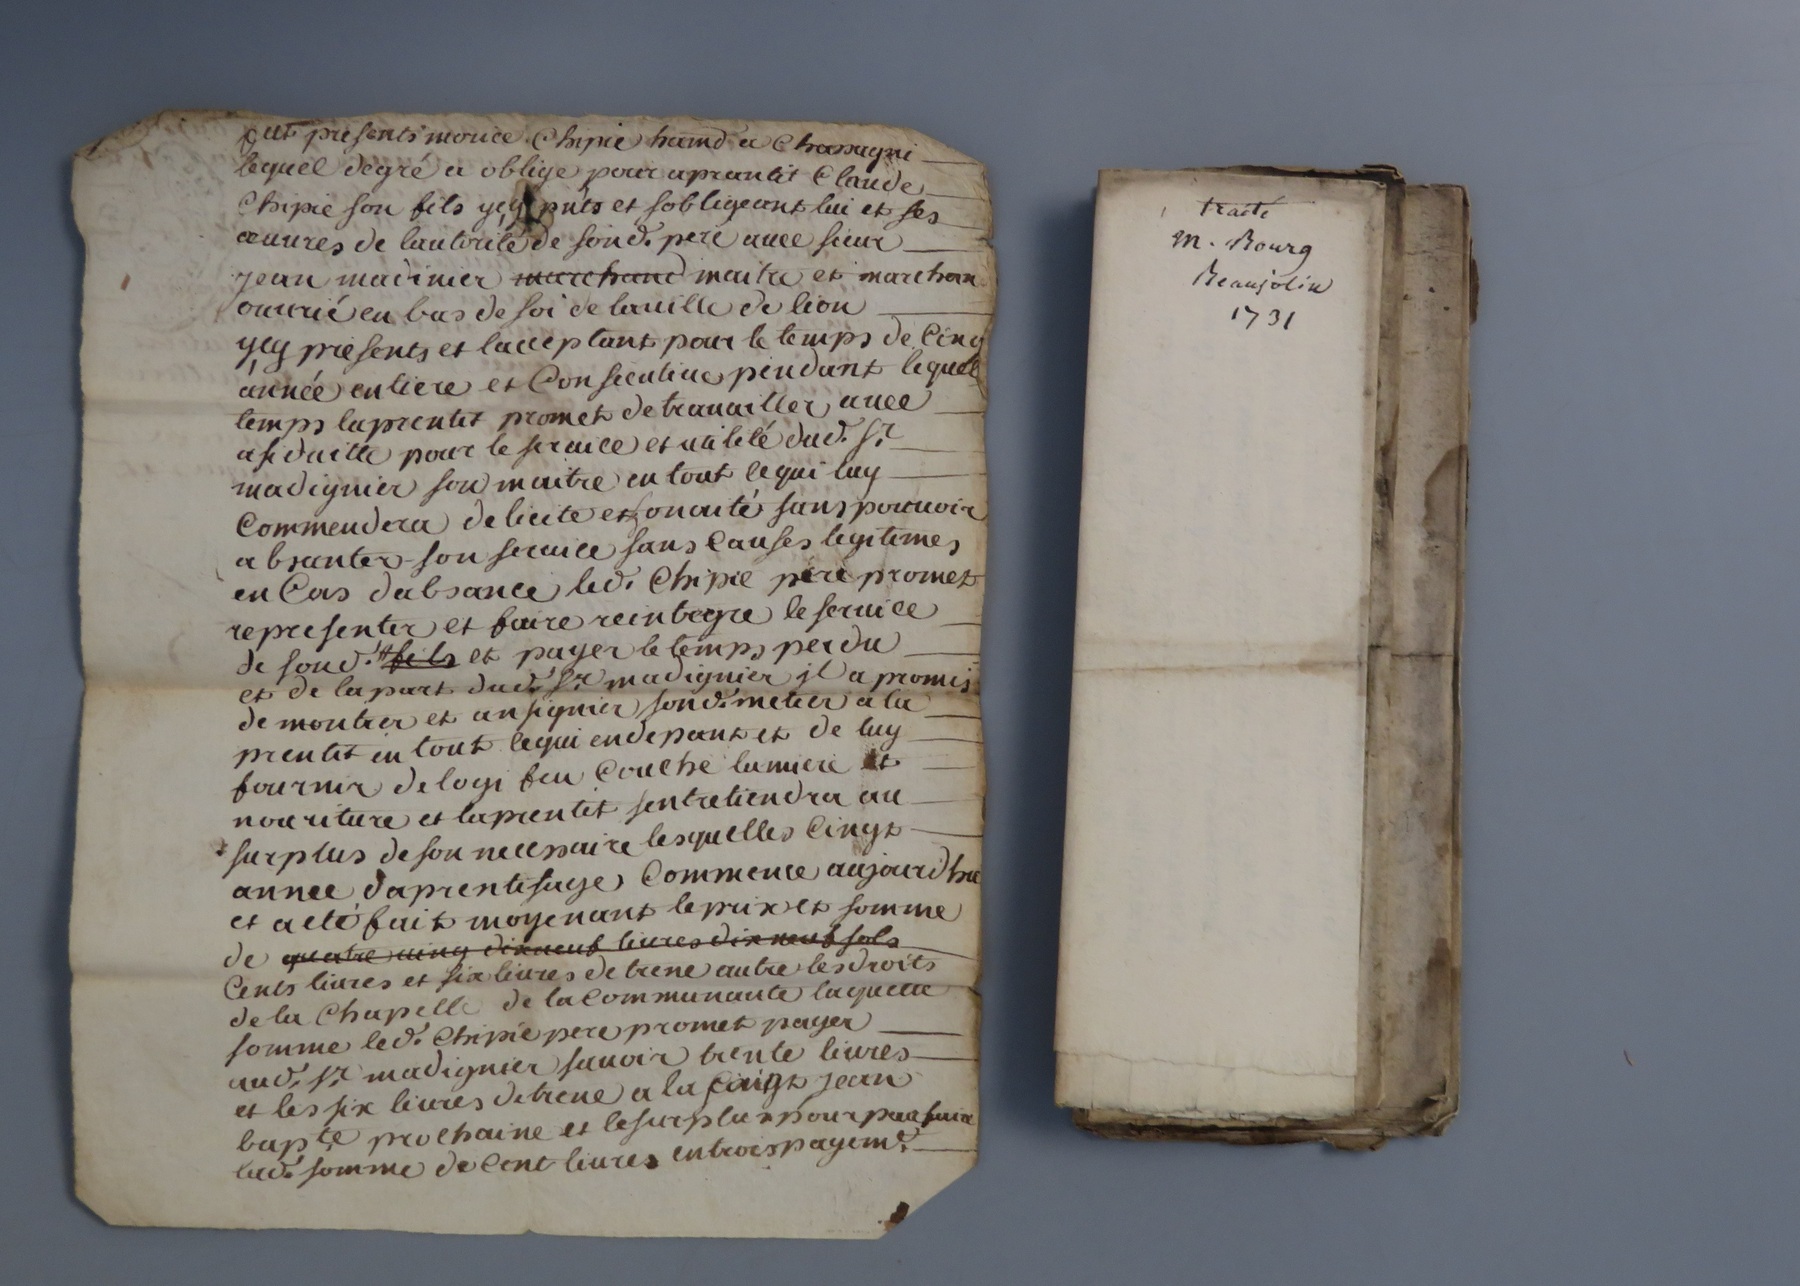 presents mouice Chipié à Chassagni
lequel degré a oblige pour aprantit Claude
Chipié son fils ycy pnts et sobligeant lui et ses
œuures de lautorite de sond. pere auec sieur
jean madinier marchand maitre et marchan
ouurié en bas de soi de la uille de lion
ycy presents et lacceptant pour le temps de Cinq
année entiere et Consecutiue pendant lequel
temps laprentit promet de trauailler auec
asiduitte pour le seruice et utilité dud. Sr
madignier son maitre en tout ce qui luy
Commendera de licite et honaité sans pouuoir
absanter son seruice sans Causes legitimes
en Cas dabsance led. Chipié péré promet
representer et faire reintegre le seruice
de sond. fils et payer le temps perdu
et de la part dud. Sr madignier jl a promis
de montrer et ansignier sond. metier a la
prentit en tout ce qui en depant et de luy
fournir de logi feu Couché lumiere et
nouriture et laprentit sentretiendra au
surplus de son necessaire lesquelles Cinqt
annee daprentisage Commence aujourdhui
et a eté fait moyenant le prix et somme
de quatre uing dixneuf liures dix neuf sols
Cents liures et six liures detrene autre les droits
de la Chapelle de la Communaute laquelle
somme led. Chipié pere promet payer
aud. Sr madignier sauoir trente liures
et les six liures detrene a la saingt jean
bapte prochaine et le surplus pour parfaire
lad. somme de Cent liures en trois payemt.
traité
M. Bourg
Beaujolin
1731